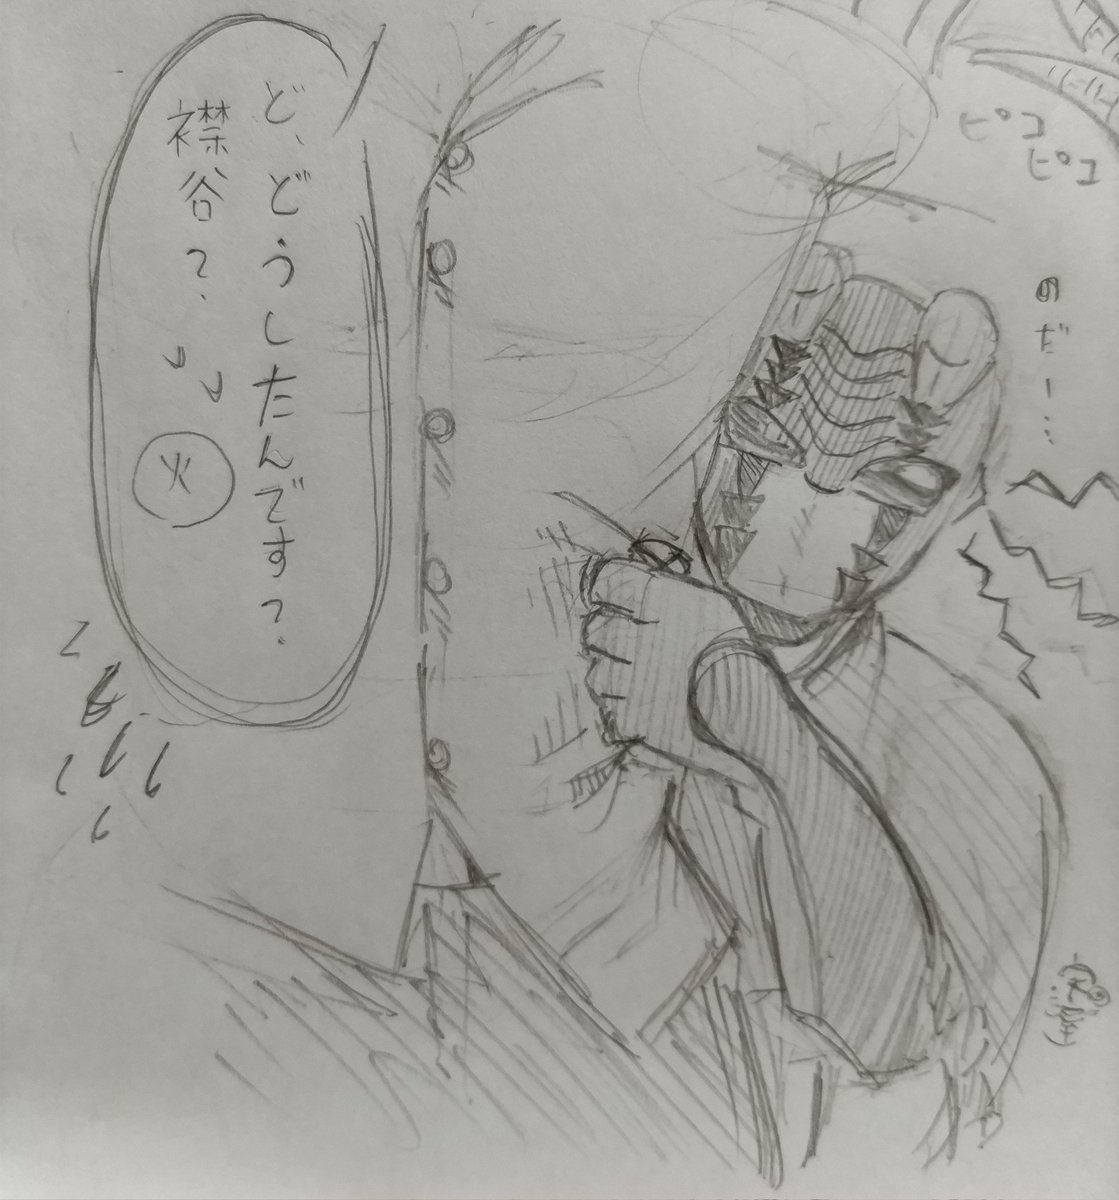 ピコ
ピコ
のだー…
ど、どうしたんです？
襟谷？
火